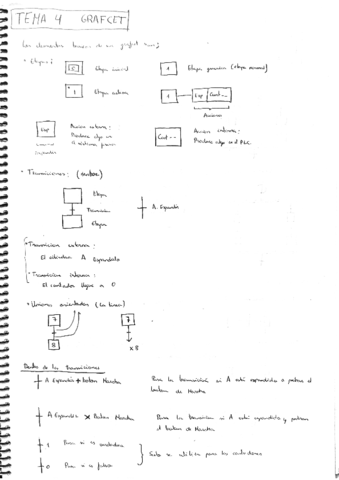 TEMA 4 GRAFCET
Los elementos de un grafcet son:
* Etapas:
0 Etapa inicial
1 Etapa genérica (etapa normal)
* 1 Etapa activa
1 Exp Cont--
Acciones
Exp
Acción externa:
Produce algo en
A sistema
Cont--
Acción interna:
Produce algo en el PLC
* Transiciones: (
Etapa
Transición
Etapa
A Expandido
* Transición externa:
El cilindro A Expandido
* Transición interna:
El contador llegue a 0
* Uniones orientadas (la línea)
7
8
7
x8
Dentro de las transiciones
A Expandido + boton Marcha
Pasa la transición si A está expandido o pulsas el
boton de Marcha
A Expandido x Boton Marcha
Pasa la transición si A está expandido y pulsas
el boton de Marcha
1 Pasa si es
0 Pasa si es falsa
Solo se utiliza para los contadores